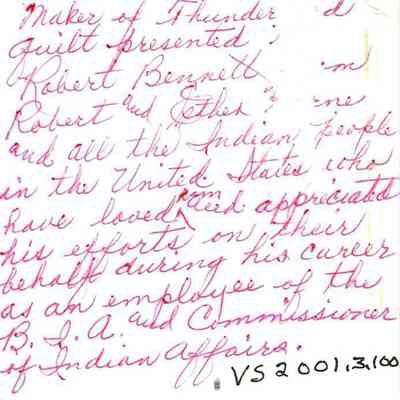 Maker of Thunder d
quilt presented
Robert Bennett
Robert and Esther
and all the Indian people
in the United States who
have loved him and appreciated
his efforts on their
behalf during his career
as an employee of the
B. I. A. and Commissioner
of Indian Affairs.
VS2001.3.100